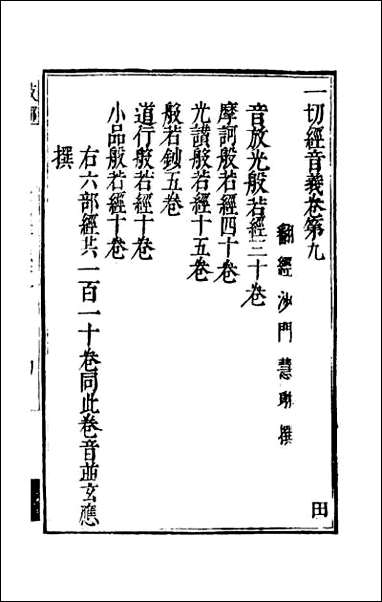 一切經音義卷第九
翻經沙門慧琳撰
音放光般若經三十卷
摩訶般若經四十卷
光讃般若經十五卷
般若鈔五卷
道行般若經十卷
小品般若經十卷
右六部經共一百一十卷同此卷音並玄應
撰
田